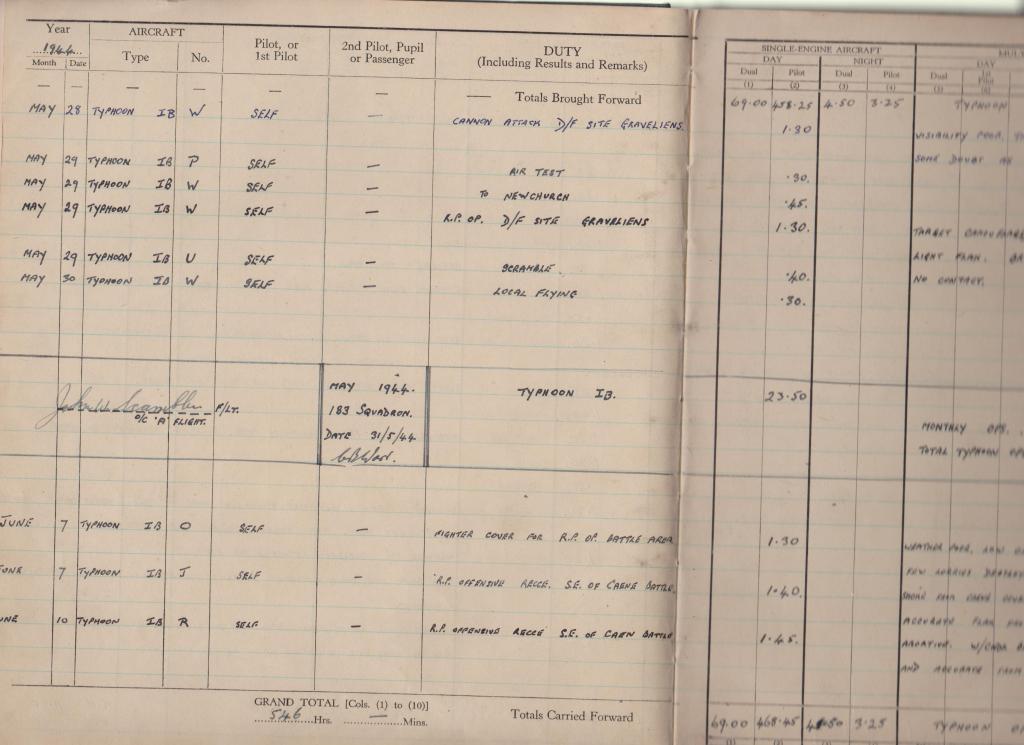 Year 1944 AIRCRAFT Pilot, or 1st Pilot 2nd Pilot, Pupil or Passenger DUTY (Including Results and Remarks) SINGLE-ENGINE AIRCRAFT
Month Date Type No. DAY NIGHT DAY
Dual Pilot Dual Pilot Dual 1st Pilot
(1) (2) (3) (4) (5) (6)
— — — — — — — Totals Brought Forward 69.00 458.25 4.50 3.25 TYPHOON
MAY 28 TYPHOON IB W SELF — CANNON ATTACK D/F SITE GRAVELIENS. 1.30 VISIBILITY POOR.
SOME DOUBT AS
MAY 29 TYPHOON IB P SELF — AIR TEST .30.
MAY 29 TYPHOON IB W SELF — TO NEWCHURCH .45.
MAY 29 TYPHOON IB W SELF — R.P. OP. D/F SITE GRAVELIENS 1.30. TARGET
LIGHT FLAK.
MAY 29 TYPHOON IB U SELF — SCRAMBLE. .40. NO CONTACT.
MAY 30 TYPHOON IB W SELF — LOCAL FLYING .30.
F/LT.
O/C 'A' FLIGHT.
MAY 1944.
183 SQUADRON.
DATE 31/5/44
TYPHOON IB. 23.50
MONTHLY OPS.
TOTAL TYPHOON
JUNE 7 TYPHOON IB O SELF — FIGHTER COVER FOR R.P. OP. BATTLE AREA 1.30 WEATHER POOR. LOW
FEW LORRIES
7 TYPHOON IB J SELF — R.P. OFFENSIVE RECCE. S.E. OF CAENE BATTLE. 1.40.
10 TYPHOON IB R SELF — R.P. OFFENSIVE RECCE S.E. OF CAEN BATTLE 1.45. ACCURATE FLAK
AND ACCURATE FROM
GRAND TOTAL [Cols. (1) to (10)]
546 Hrs. — Mins.
Totals Carried Forward 69.00 468.45 4.50 3.25 TYPHOON